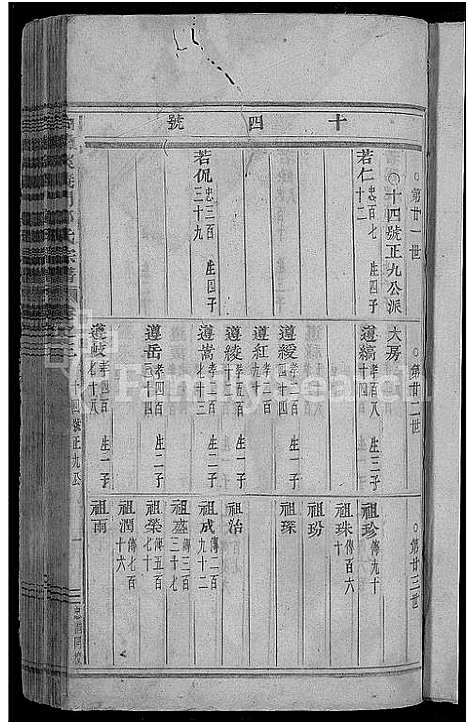 十四號
○第廿一世
○十四號正九公派
若仁 忠百七十二 生四子
若侃 忠三百三十九 生四子
○第廿二世
大房
遵縞 孝百八 生三子
遵綬 孝百四十四 生一子
遵紅
遵綾 生一子
遵嵩 孝四百七十三 生二子
遵岳 孝四百 生二子
遵岐 孝四百七十八 生一子
○第廿三世
祖珍 傳九十
祖珠 傳百六
祖玢
祖琛
祖治
祖成 傳二百九十二
祖盛 傳三百三十七
祖榮 傳五百七十
祖潤 傳七百十六
祖雨
十四號正九公
一
FamilySearch